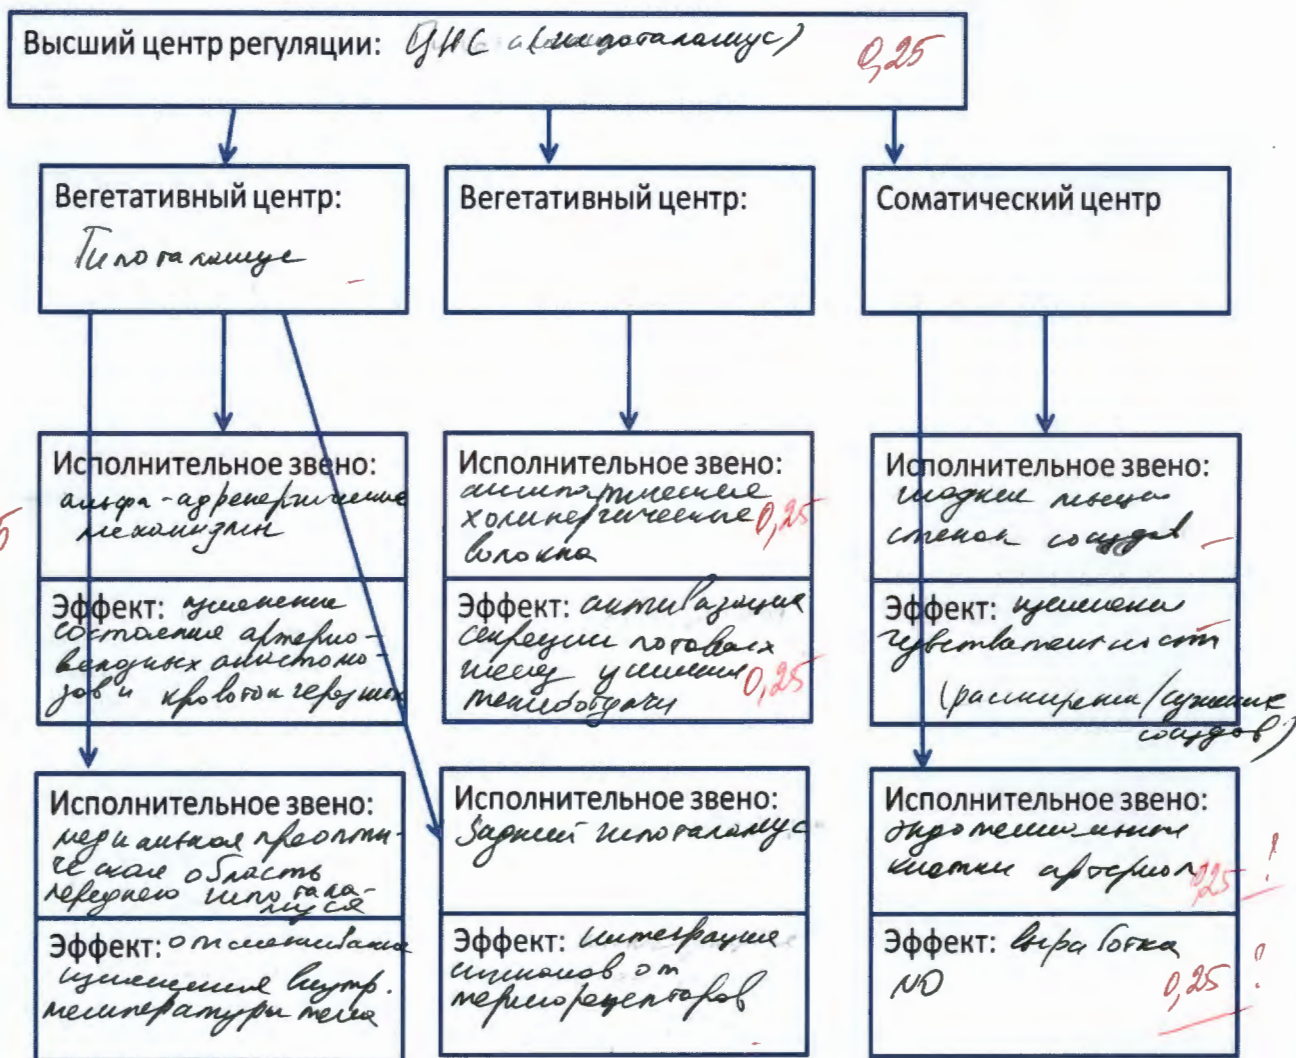 Высший центр регуляции: ЦНС (гипоталамус) 0,25
Вегетативный центр:
Гипоталамус
Вегетативный центр:
Соматический центр
Исполнительное звено:
альфа-адренергические
механизмы
5
Эффект: изменение
состояния артерио-
венозных анастомо-
зов и кровоток
Исполнительное звено:
симпатические
холинергические 0,25
волокна
Эффект: активизация
секреции потовых
желез усиление 0,25
теплоотдачи
Исполнительное звено:
гладкие мышцы
стенок сосудов
Эффект: изменение
чувствительности
(расширение/сужение
сосудов)
Исполнительное звено:
медиальная преопти-
ческая область
переднего гипотала-
муса
Эффект: отслеживание
изменения внутр.
температуры тела
Исполнительное звено:
Задний гипоталамус
Эффект: интеграция
сигналов от
терморецепторов
Исполнительное звено:
эндотелиальные
клетки артериол 0,25 !
Эффект: выработка
NO 0,25 !